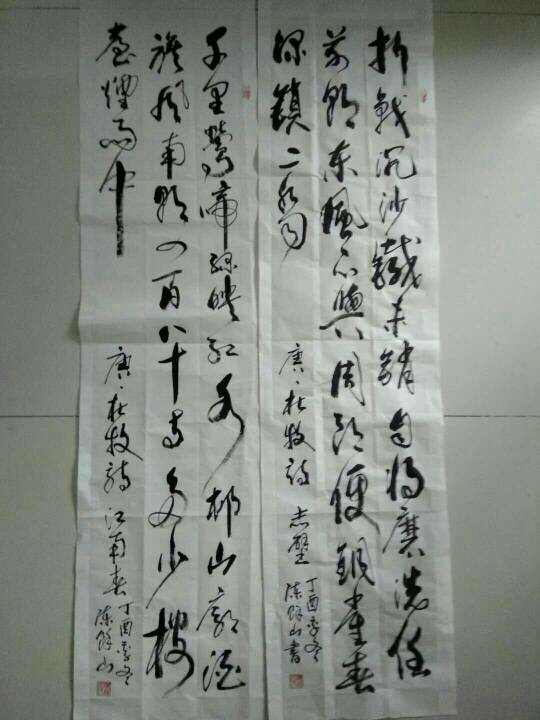 折戟沉沙鐵未銷自將磨洗認
前朝东風不與周郎便銅雀春
深鎖二喬
唐杜牧詩 赤壁
丁酉季冬
陈山書
千里鶯啼綠映紅水邨山郭酒
旗風南朝四百八十寺多少樓
臺煙雨中
唐杜牧詩 江南春
丁酉季冬
陈山